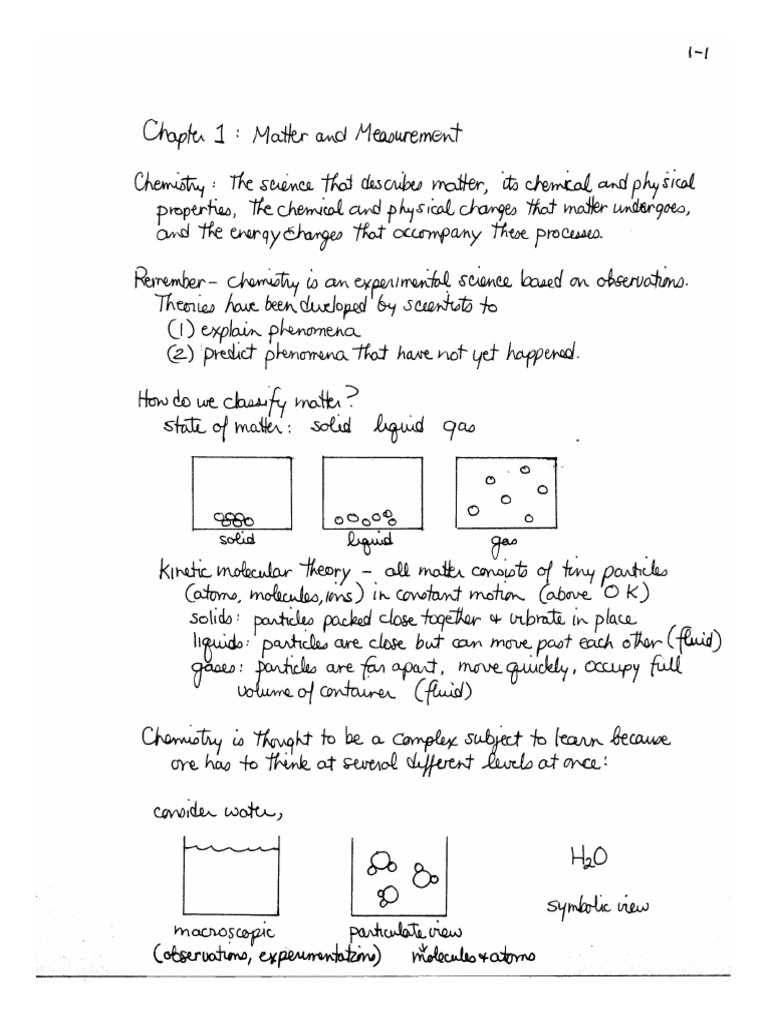 1-1
Chapter 1: Matter and Measurement
Chemistry: The science that describes matter, its chemical and physical
properties, the chemical and physical changes that matter undergoes,
and the energy changes that accompany these processes.
Remember - chemistry is an experimental science based on observations.
Theories have been developed by scientists to
(1) explain phenomena
(2) predict phenomena that have not yet happened.
How do we classify matter?
state of matter: solid liquid gas
solid liquid gas
kinetic molecular theory - all matter consists of tiny particles
(atoms, molecules, ions) in constant motion (above 0 K)
solids: particles packed close together & vibrate in place
liquids: particles are close but can move past each other (fluid)
gases: particles are far apart, move quickly, occupy full
volume of container (fluid)
Chemistry is thought to be a complex subject to learn because
one has to think at several different levels at once:
consider water,
H₂O
symbolic view
macroscopic particulate view
(observations, experimentation) molecules & atoms